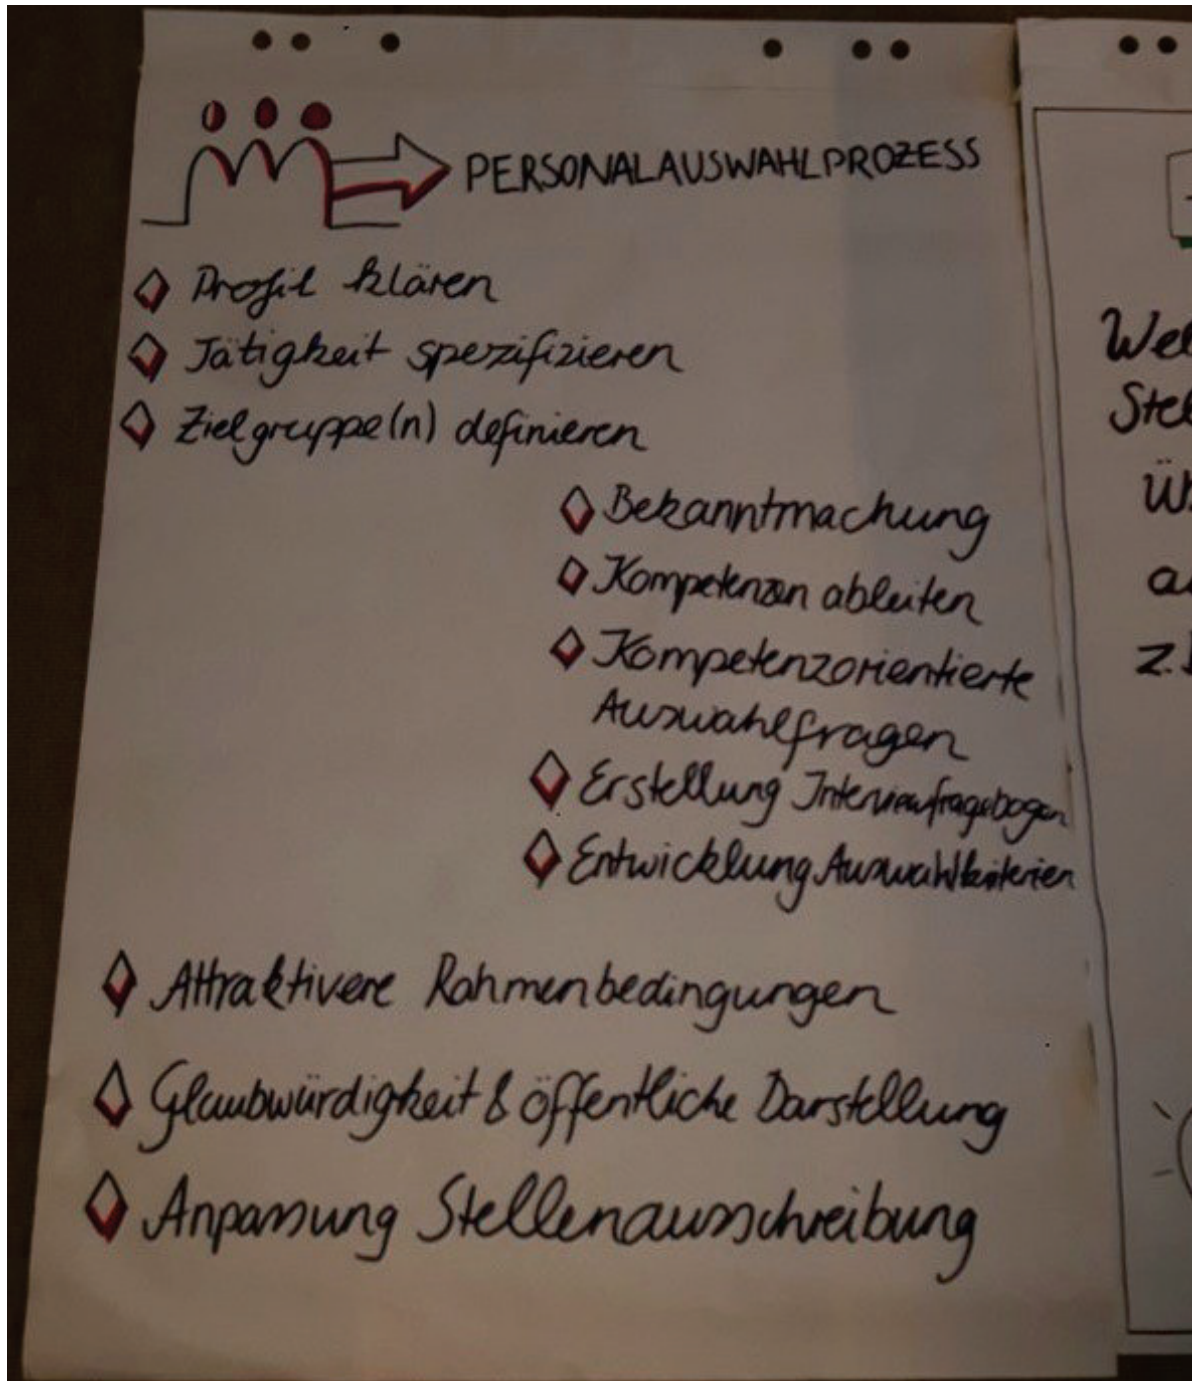 PERSONALAUSWAHLPROZESS
Profil klären
Tätigkeit spezifizieren
Zielgruppe(n) definieren
Bekanntmachung
Kompetenzen ableiten
Kompetenzorientierte
Auswahlfragen
Erstellung Interviewfragebogen
Entwicklung Auswahlkriterien
Attraktivere Rahmenbedingungen
Glaubwürdigkeit & öffentliche Darstellung
Anpassung Stellenausschreibung
Wel
Stel
z.B